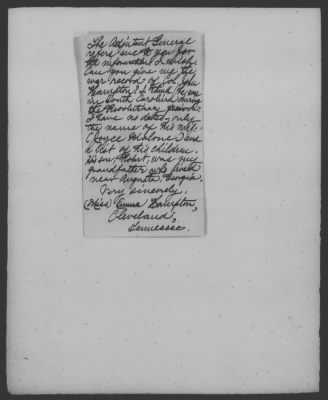 The Adjutant General
refers me to you for
the information I wish.
Can you give me the
war record of Col. Jno
Hampton? I think he was
in South Carolina during
the Revolutionary period.
I have no dates, only
the name of his wife
(Joyce Malone) and
a list of his children.
His son, Robert, was my
grandfather who lived
near Augusta, Georgia.
Very sincerely,
(Miss) Emma Hampton,
Cleveland,
Tennessee.